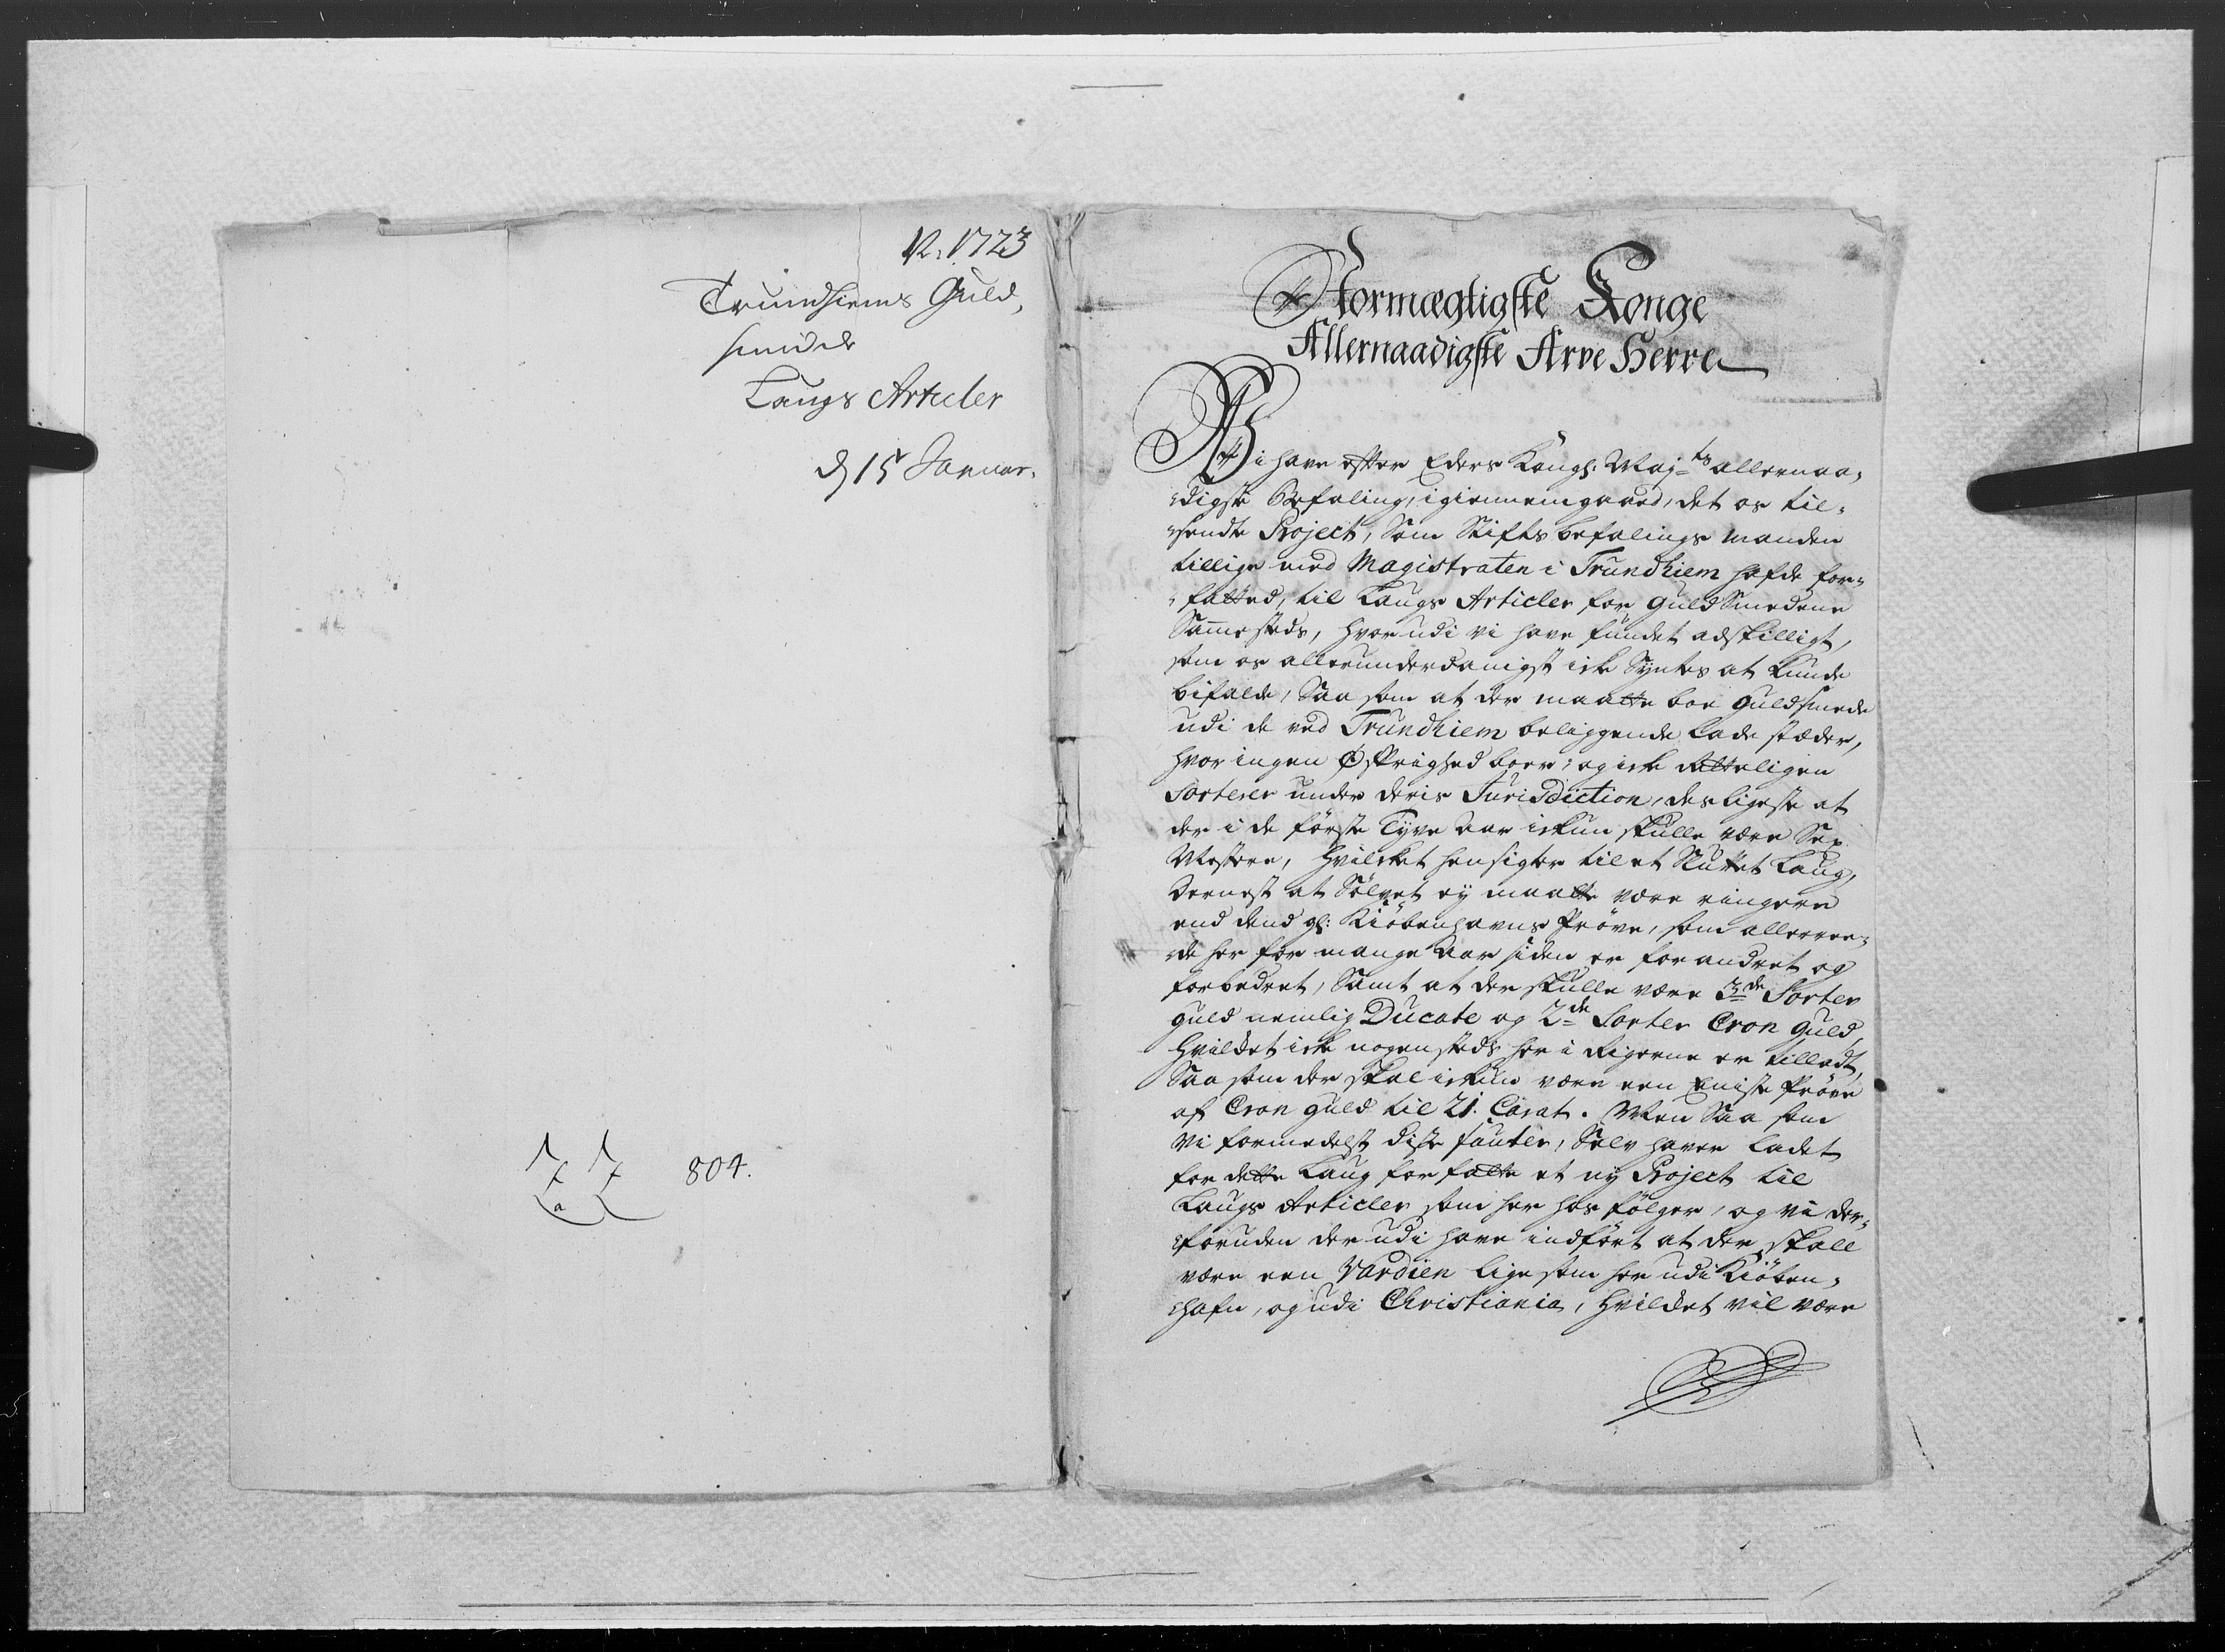 N. 1723
Trundhiems Guld,
smids
Laugs Articler
d 15 Januar.
77 804.
a
Stormægtigste Konge
Allernaadigste Arve Herre
Vi have efter Eders Kongl: Maj=ts allernaa=
=digste Befaling, igiennemgaaed, det os til=
=sendte Project, Som Stiftsbefalings manden
tillige med Magistraten i Trundhiem hafde for=
=fatted, til Laugs Articler for Guld Smedene
Sammesteds, hvorudi vi have fundet adskilligt,
som os allerunderdanigst icke Syntes at kunde
bifalde, Saa som at der maatte boe Guldsmede
udi de ved Trundhiem beliggende Lade stæder,
hvor ingen Øfrighed boer, og icke Retteligen
Sorterer under deris Jurisdiction, desligeste at
der i de förste Tyve Aar ickun skulle være Sex
Mestere, Hvilcket hensigter til et Sluttet Laug,
Dernest at Sölvet ey maatte være ringere
end dend gl: Kiöbenhavns Pröve, som allerree=
=de her for mange Aar siden er forandret og
forbedret, Samt at der skulle være 3de Sorter
guld nemlig Ducate og 2de Sorter Cron guld,
Hvilcket icke nogensteds her i Rigerne er tilladt,
Saa som der skal ickun være een Eniste Pröve
af Cron guld til 21. Carat. Men Saa som
Vi formedelst disse fauter, Selv haver ladet
for dette Laug forfatte et ny Project til
Laugs Articler som her hos fölger, og vi der=
=foruden der udi have indfört at der skall
være een Vardien lige som her udi Kiöben=
=hafn, og udi Christiania, Hvilcket vil være